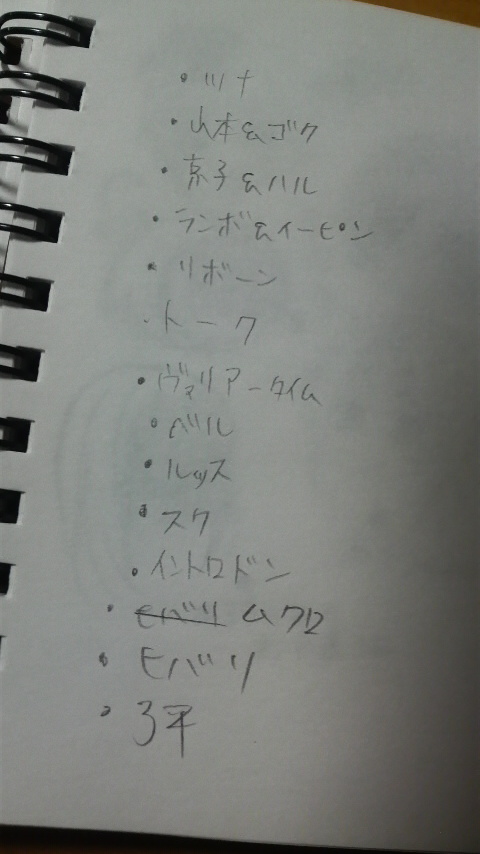 ・ツナ
・山本&ゴク
・京子&ハル
・ランボ&イーピン
・リボーン
・トーク
・ヴァリアータイム
・ベル
・ルッス
・スク
・イントロドン
・ヒバリ ムクロ
・ヒバリ
・了平